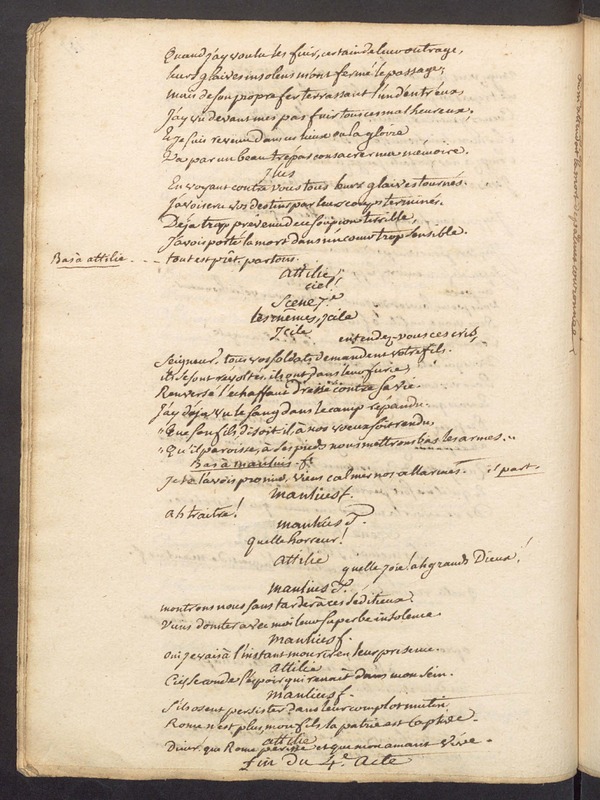 Quand j'ay voulu les fuir, certain de leur outrage,
leurs glaives insolens m'ont fermé le passage;
mais de son propre fer terrassant l'un d'entr'eux,
J'ay vu devant mes pas fuir tous ces malheureux,
Et je suis revenu dans ces lieux ou la gloire
Va par un beau trépas consacrer ma mémoire.
En voyant contre vous tous leurs glaives tournés.
J'avois cru vos destins par leurs coups terminés.
Déja trop prévenu de ce soupçon terrible,
J'avois porté la mort dans un cœur trop sensible.
Bas à attilie - - - tout est prêt, partons.
attilie
ciel!
Scene 7.e
les mêmes, Icile
Icile
entendez-vous ces cris,
Seigneur? tous vos soldats demandent votre fils.
ils se sont révoltés, ils ont dans leur furie
Renversé l'echaffaut dressé contre sa vie.
J'ay deja vu le sang dans le camp répandu.
"Que son fils disoit-il à nos vœux soit rendu
"Qu'il paroisse, à ses pieds nous mettrons bas les armes...
Bas à manlius f.
Je te l'avois promis, viens calmer nos allarmes. il part.
manlius f.
ah traitre!
manlius P.
quelle horreur!
attilie
quelle joie! ah grands Dieux!
manlius P.
montrons nous sans tarder à ces séditieux.
Viens domter avec moi leur superbe insolence.
manlius f.
oui je vais à l'instant mourir en leur présence.
attilie
Ciel seconde l'espoir qui renait dans mon sein.
manlius f.
S'ils osent persister dans leur complot mutin,
Rome n'est plus, mon fils, la patrie est captive.
attilie
Dieux, que Rome périsse et que mon amant vive.
fin du 4.e acte